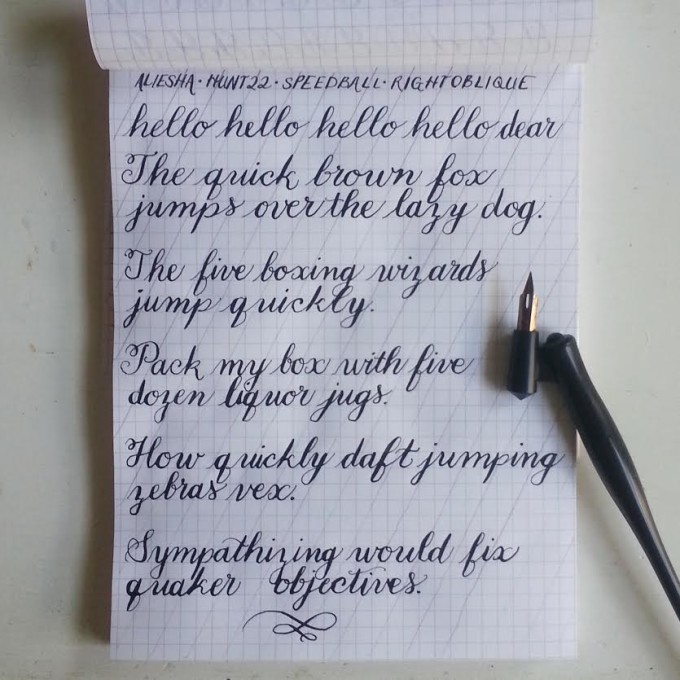 ALIESHA · HUNT22 · SPEEDBALL · RIGHTOBLIQUE
hello hello hello hello dear
The quick brown fox
jumps over the lazy dog.
The five boxing wizards
jump quickly.
Pack my box with five
dozen liquor jugs.
How quickly daft jumping
zebras vex.
Sympathizing would fix
quaker objectives.